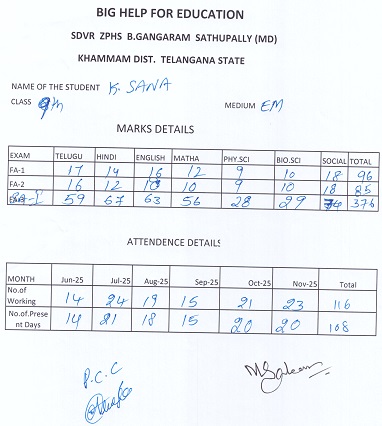 BIG HELP FOR EDUCATION
SDVR ZPHS B.GANGARAM SATHUPALLY (MD)
KHAMMAM DIST. TELANGANA STATE
NAME OF THE STUDENT K. SANA
CLASS 9th MEDIUM EM
MARKS DETAILS
EXAM TELUGU HINDI ENGLISH MATHA PHY.SCI BIO.SCI SOCIAL TOTAL
FA-1 17 14 16 12 9 10 18 96
FA-2 16 12 10 10 9 10 18 85
SA-I 59 67 63 56 28 29 74 376
ATTENDENCE DETAILS
MONTH Jun-25 Jul-25 Aug-25 Sep-25 Oct-25 Nov-25 Total
No.of
Working 14 24 19 15 21 23 116
No.of.Prese
nt Days 14 21 18 15 20 20 108
P.C.C